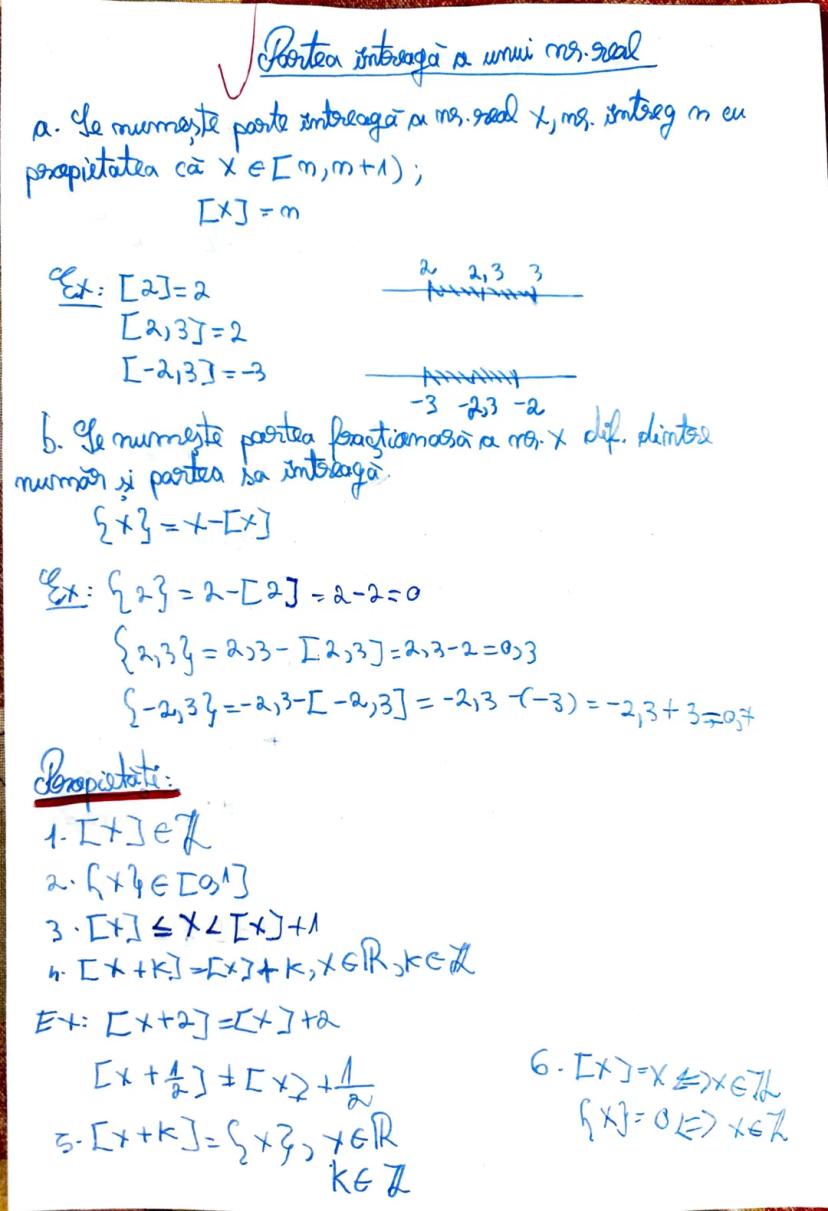 Partea întreagă a unui nr. real
a. Se numește parte întreagă a nr. real x, nr. întreg n cu
propietatea că x ∈ [n, n+1);
[x] = n
Ex: [2]=2
[2,3]=2
[-2,3]=-3
2 2,3 3
-3 -2,3 -2
b. Se numește partea fracționară a nr. x dif. dintre
număr și partea sa întreagă.
{x} = x-[x]
Ex: {2} = 2-[2] = 2-2=0
{2,3} = 2,3 - [2,3]=2,3-2=0,3
{-2,3}=-2,3-[-2,3] = -2,3 -(-3) = -2,3+3=0,7
Propietăți:
1. [x] ∈ ℤ
2. {x} ∈ [0,1]
3. [x] ≤ x < [x]+1
4. [x+k]=[x]+k, x∈ℝ, k∈ℤ
Ex: [x+2]=[x]+2
[x+1/2] ≠ [x]+1/2
5. [x+k]={x}, x∈ℝ
k∈ℤ
6. [x]=x <=> x∈ℤ
{x}=0 <=> x∈ℤ